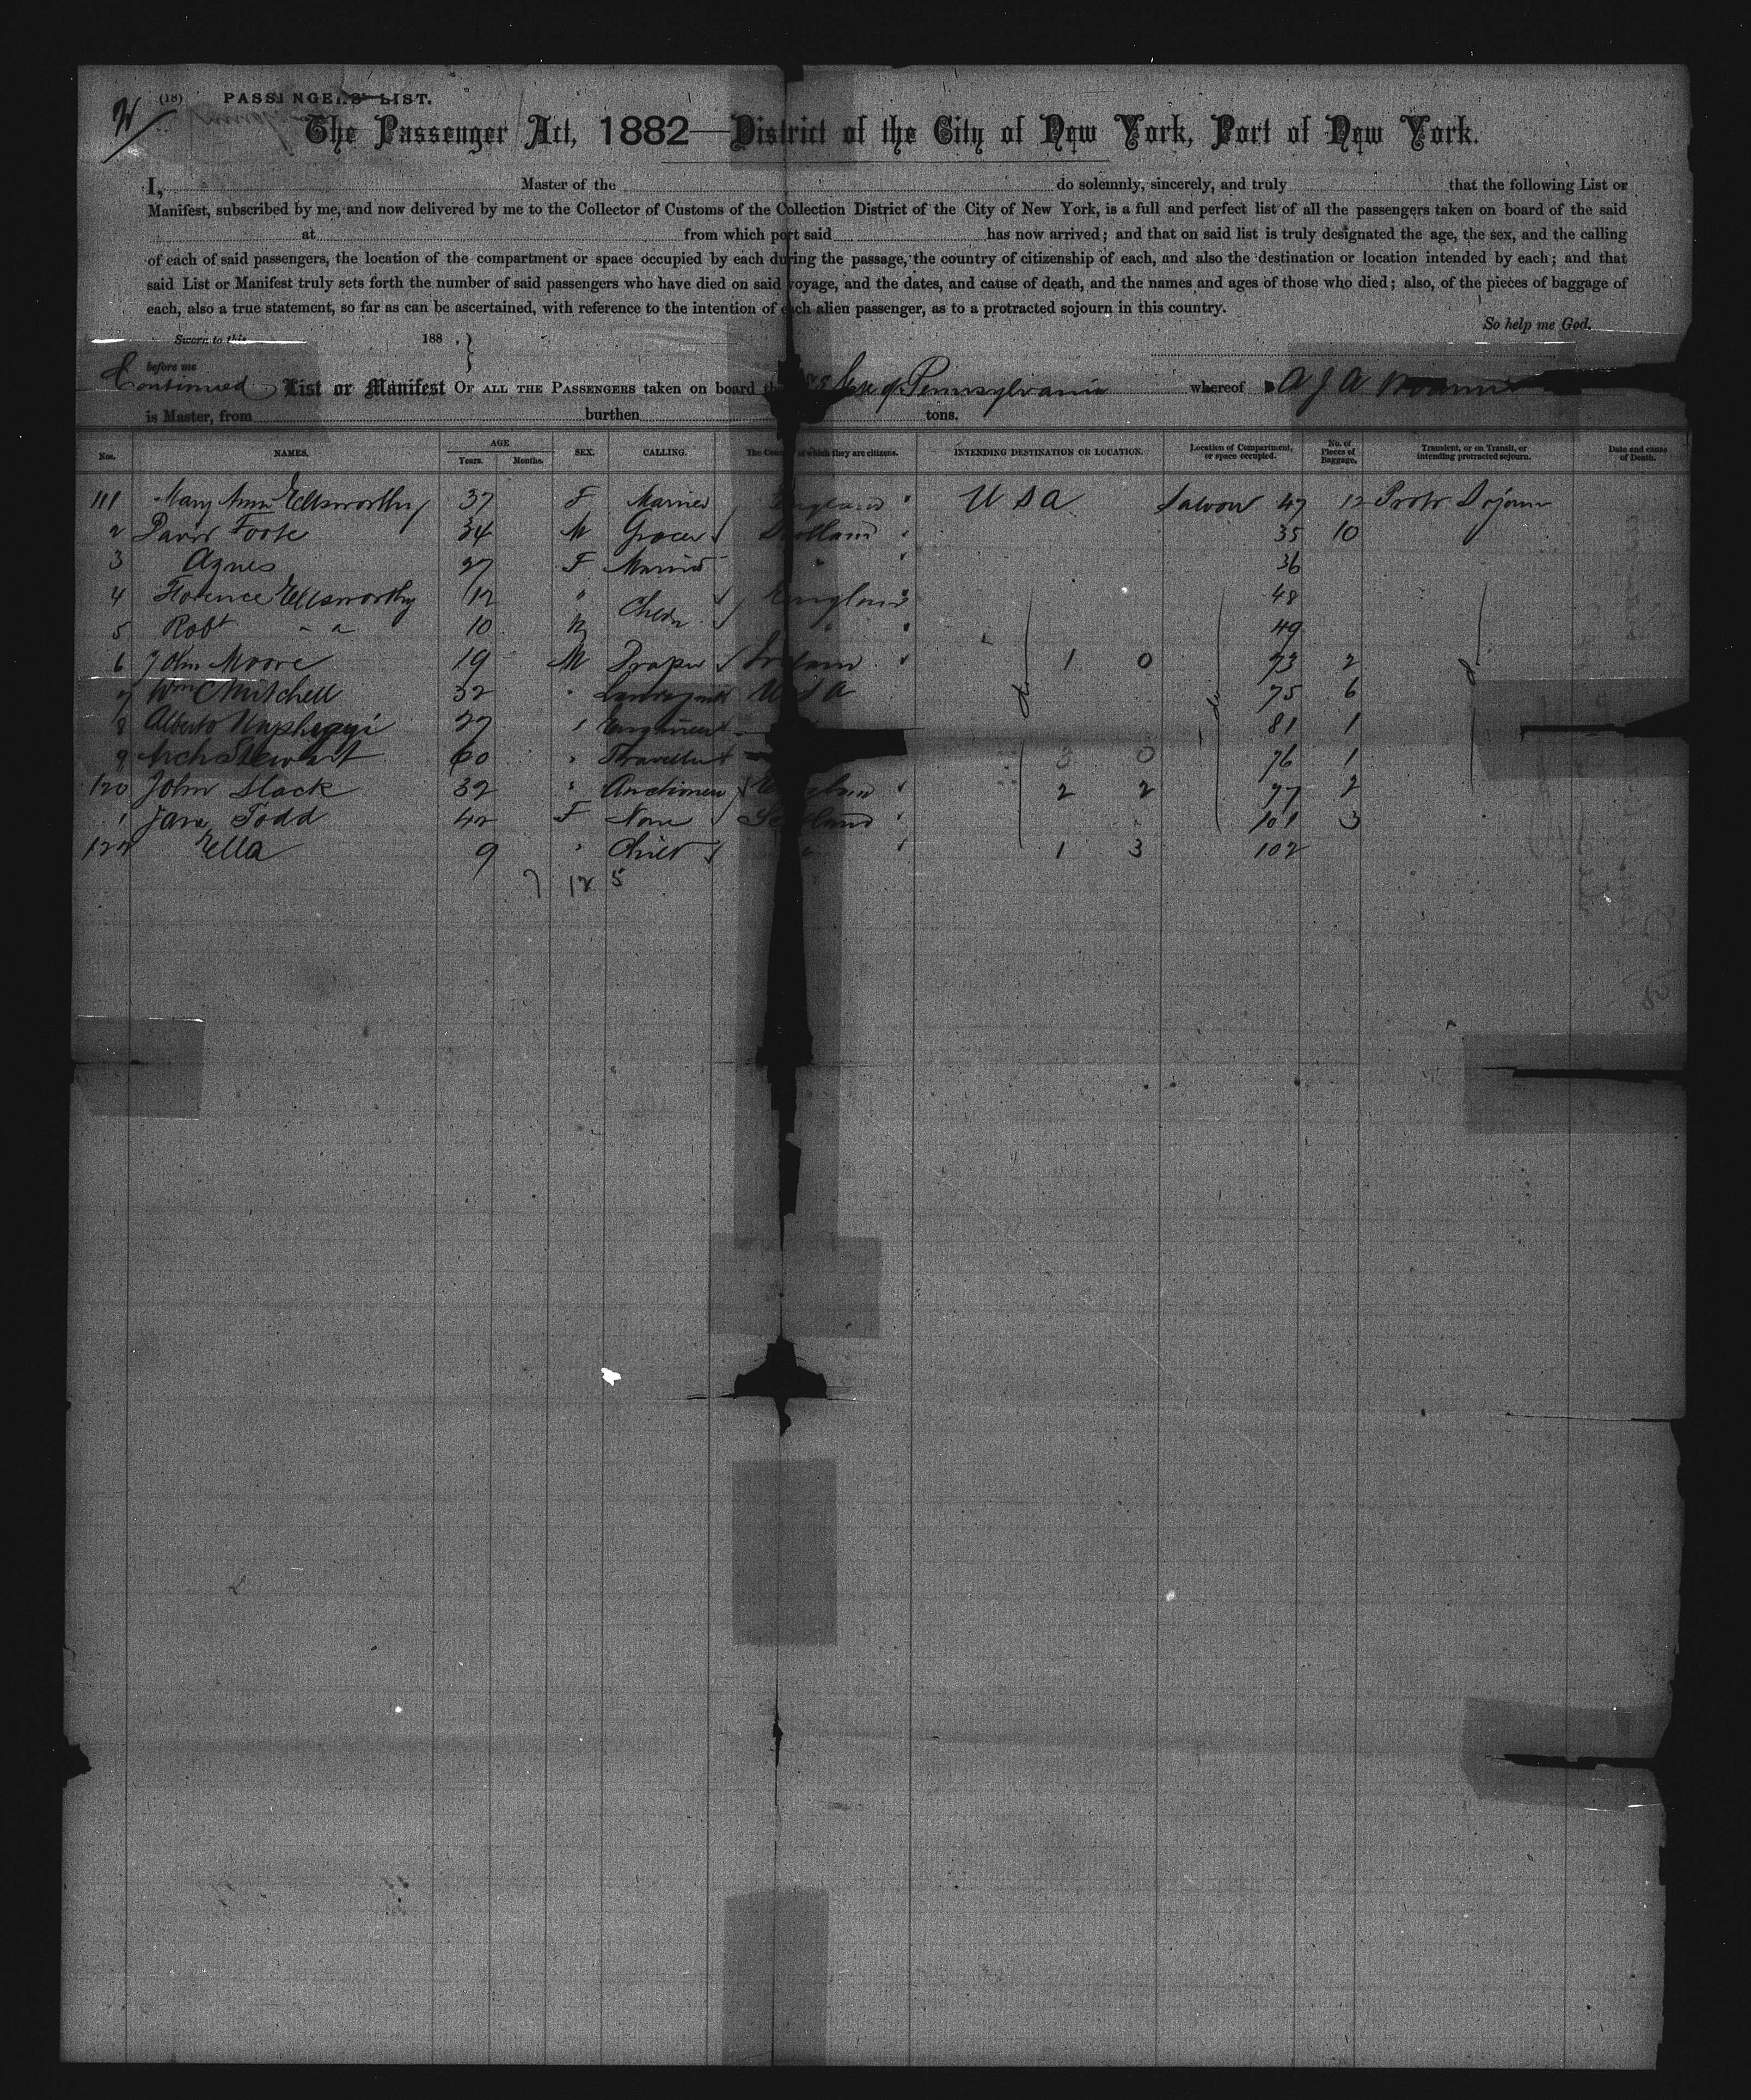 (18) PASSENGERS' LIST.
The Passenger Act, 1882—District of the City of New York, Port of New York.
I, Master of the do solemnly, sincerely, and truly that the following List or
Manifest, subscribed by me, and now delivered by me to the Collector of Customs of the Collection District of the City of New York, is a full and perfect list of all the passengers taken on board of the said
at from which port said has now arrived; and that on said list is truly designated the age, the sex, and the calling
of each of said passengers, the location of the compartment or space occupied by each during the passage, the country of citizenship of each, and also the destination or location intended by each; and that
said List or Manifest truly sets forth the number of said passengers who have died on said voyage, and the dates, and cause of death, and the names and ages of those who died; also, of the pieces of baggage of
each, also a true statement, so far as can be ascertained, with reference to the intention of each alien passenger, as to a protracted sojourn in this country.
So help me God.
Sworn to this 188 .
before me
Continued List or Manifest OF ALL THE PASSENGERS taken on board the SS State of Pennsylvania whereof A J A
is Master, from burthen tons.
Nos. NAMES. AGE Years. Months. SEX. CALLING. The Country of which they are citizens. INTENDING DESTINATION OR LOCATION. Location of Compartment, or space occupied. No. of Pieces of Baggage. Transient, or on Transit, or intending protracted sojourn. Date and cause of Death.
111 Mary Ann Ellsworthy 37 F Married England " U S A Saloon 47 12 Protr Sojourn
2 David Foote 34 M Grocer Scotland " 35 10
3 Agnes 27 F Married " " 36
4 Florence Ellsworthy 12 " Chldn England " 48
5 Robt " " 10 M " 49
6 John Moore 19 M Draper Ireland " 1 0 73 2
7 Wm C Mitchell 32 " U S A do do 75 6 do
8 Alberto 27 " Engineer 81 1
9 Arch Stewart 60 " Traveller 3 0 76 1
120 John Slack 32 " Auctioneer England " 2 2 77 2
1 Jane Todd 42 F None Scotland " 101 3
122 Ella 9 " Child " " 1 3 102
7 12 5